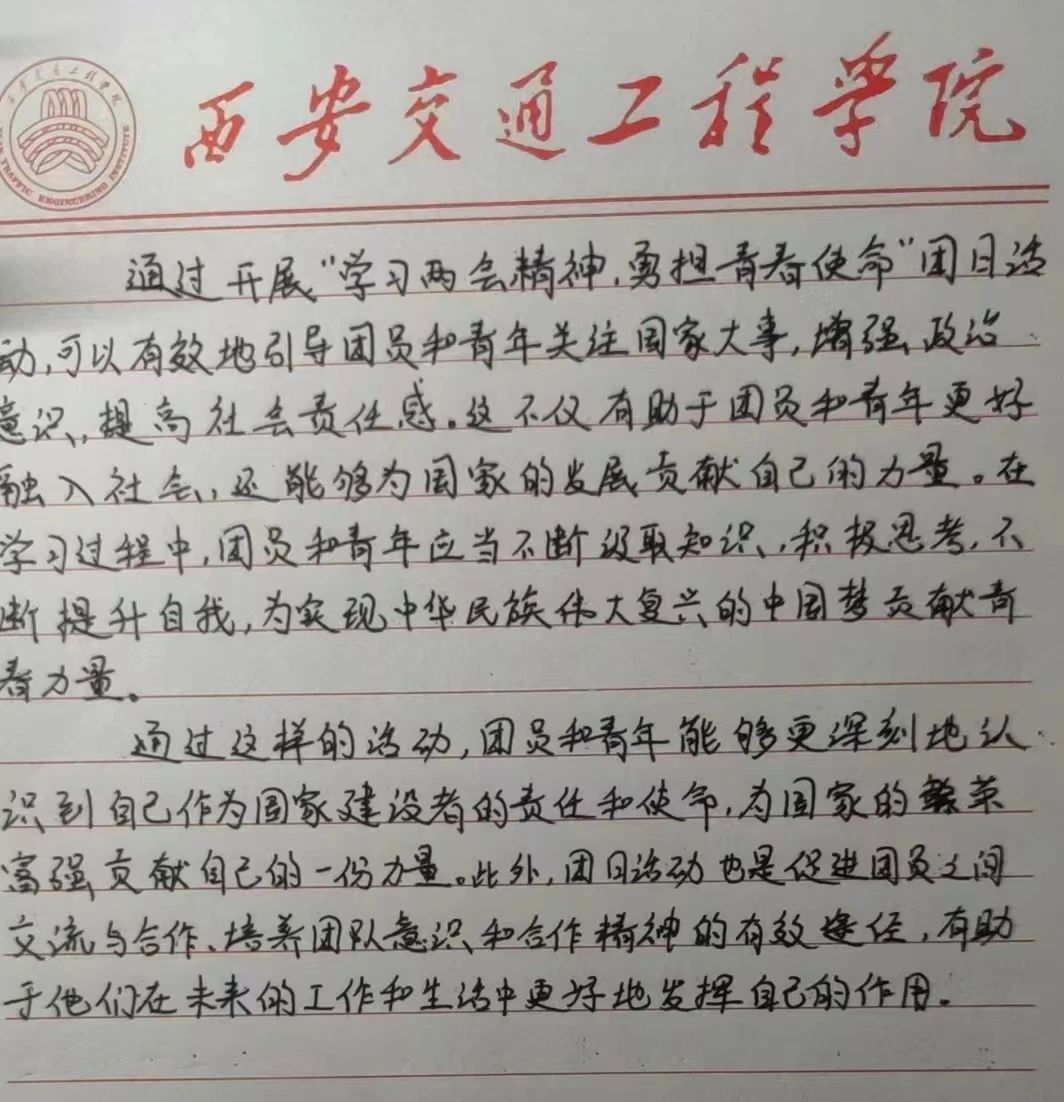 西安交通工程学院
TRAFFIC ENGINEERING INSTITUTE
通过开展"学习两会精神,勇担青春使命"团日活
动,可以有效地引导团员和青年关注国家大事,增强政治
意识,提高社会责任感。这不仅有助于团员和青年更好
融入社会,还能够为国家的发展贡献自己的力量。在
学习过程中,团员和青年应当不断汲取知识,积极思考,不
断提升自我,为实现中华民族伟大复兴的中国梦贡献青
春力量。
通过这样的活动,团员和青年能够更深刻地认
识到自己作为国家建设者的责任和使命,为国家的繁荣
富强贡献自己的一份力量。此外,团日活动也是促进团员之间
交流与合作、培养团队意识和合作精神的有效途径,有助
于他们在未来的工作和生活中更好地发挥自己的作用。